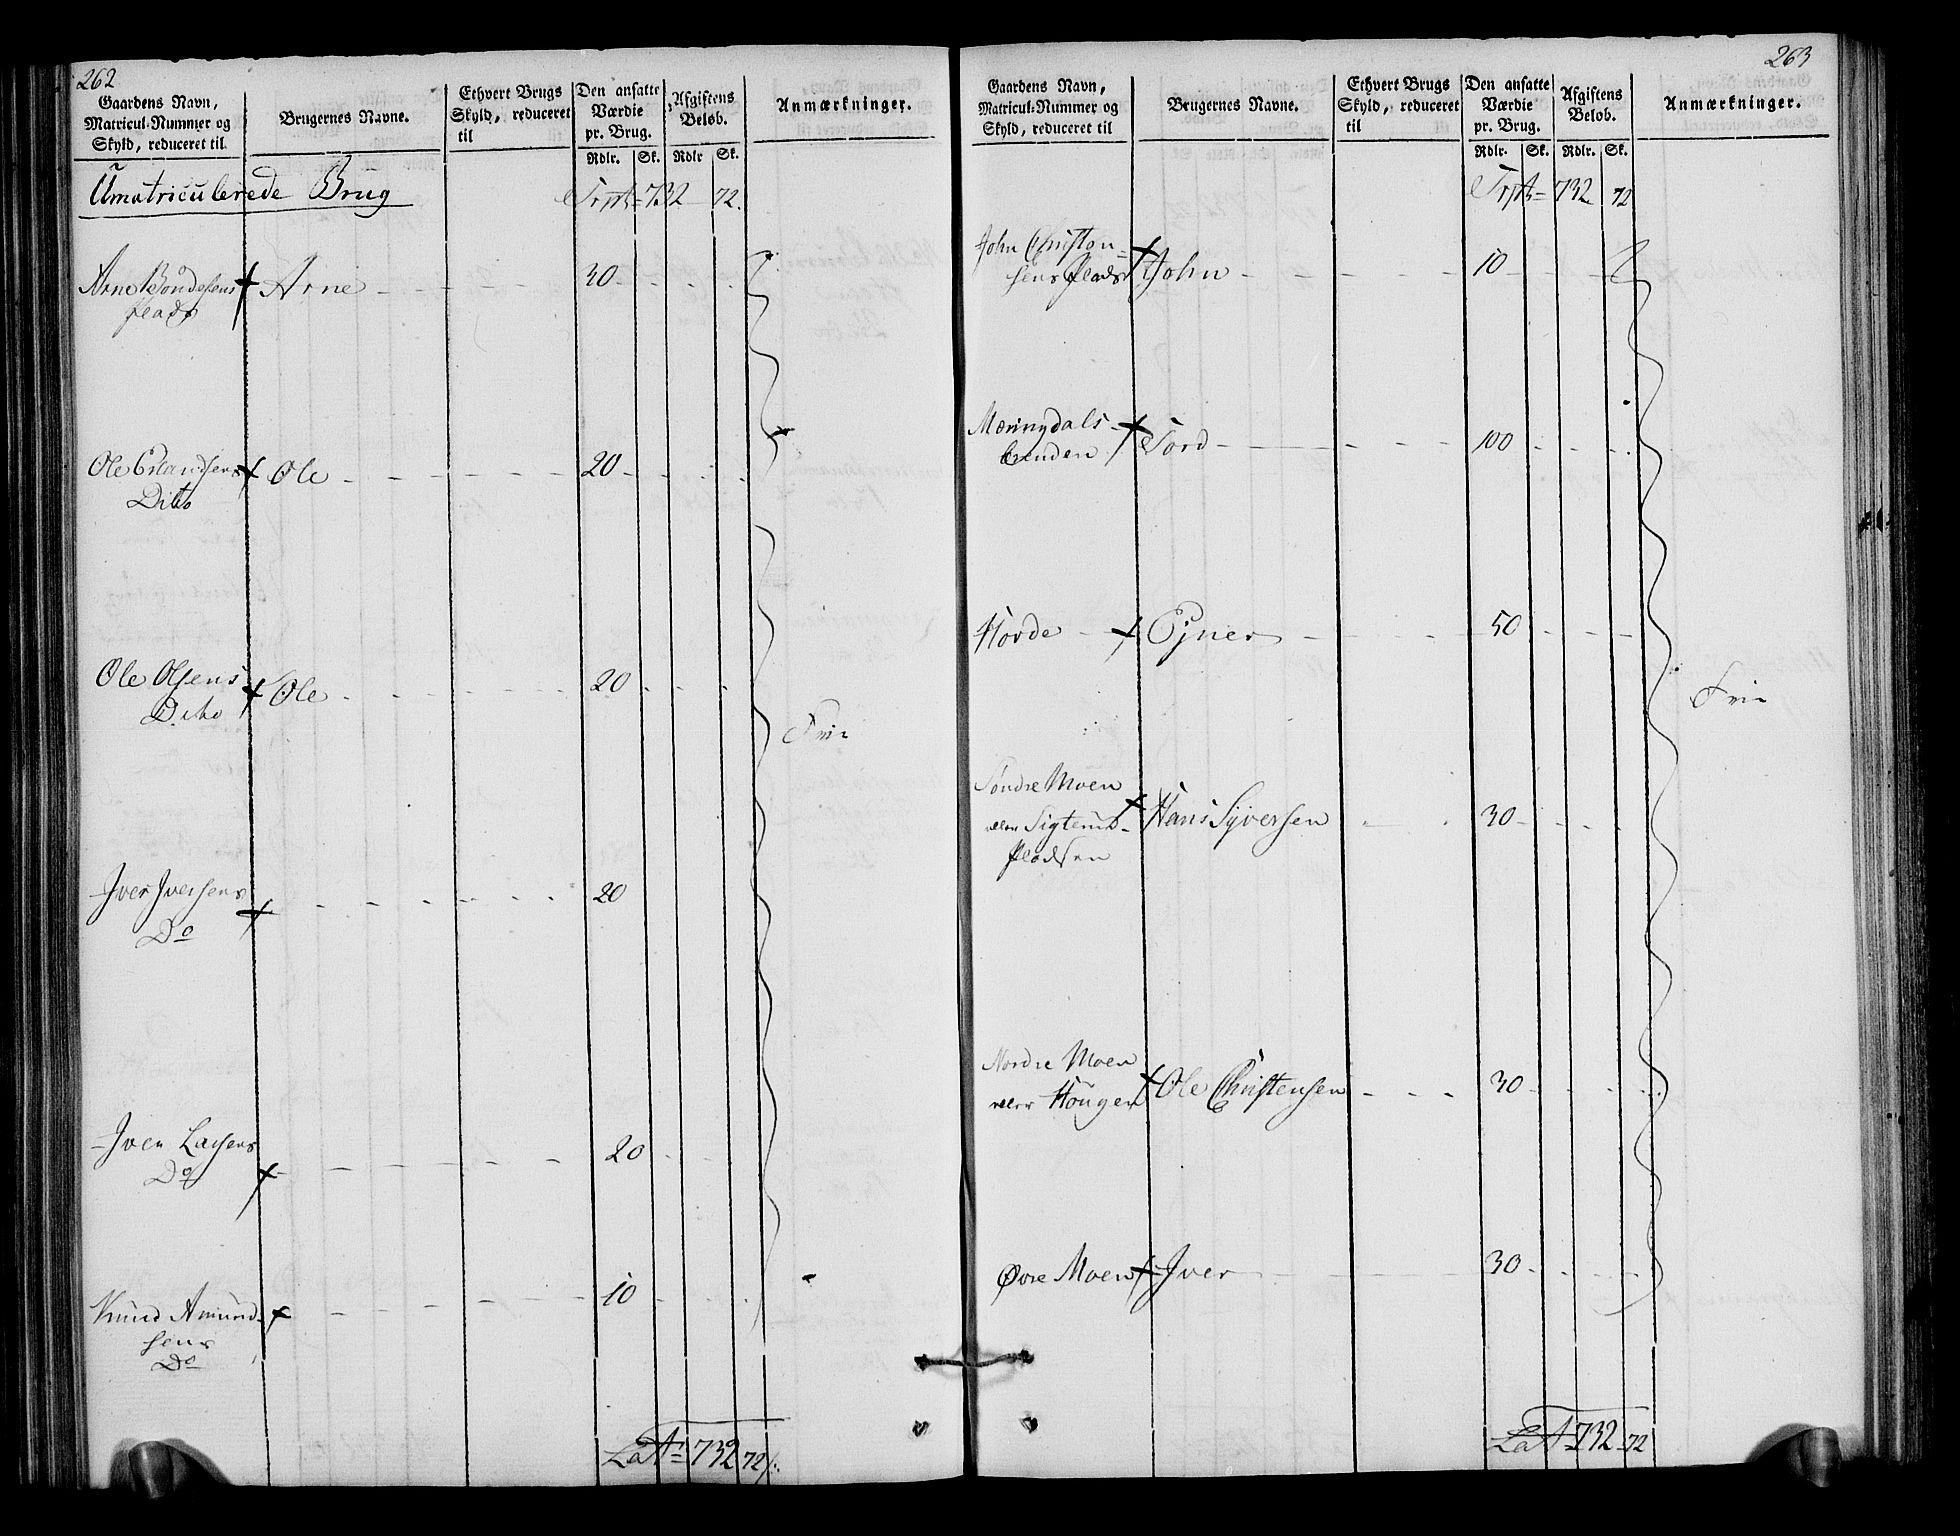 262
Gaardens Navn,
Matricul-Nummer og
Skyld, reduceret til
Brugernes Navne.
Ethvert Brugs
Skyld, reduceret
til
Den ansatte
Værdie
pr. Brug.
Rdlr. Sk.
Afgiftens
Beløb.
Rdlr Sk.
Anmærkninger.
Umatriculerede Brug
732 72.
Arne Bondesens Arne 30
Plads
Ole Erlandsens Ole 20
Dito
Ole Olsens Ole 20
Dito
Frie
Iver Iversens 20
Do
Iver Larsens 20
Do
Knud Amund- 10
sens
Do
Lat 732 72
263
Gaardens Navn,
Matricul-Nummer og
Skyld, reduceret til
Brugernes Navne.
Ethvert Brugs
Skyld, reduceret
til
Den ansatte
Værdie
pr. Brug.
Rdlr. Sk.
Afgiftens
Beløb.
Rdlr. Sk.
Anmærkninger.
732 72
John Christen-
sens Plads John 10
Møringdals
Tord 100
Horde Ejner 50
Frie
Søndre Moen
Hans Syversen 30
Pladsen
Nordre Moen
eller Hougen Ole Christensen 30
Øvre Moen Iver 30
Lat 732 72